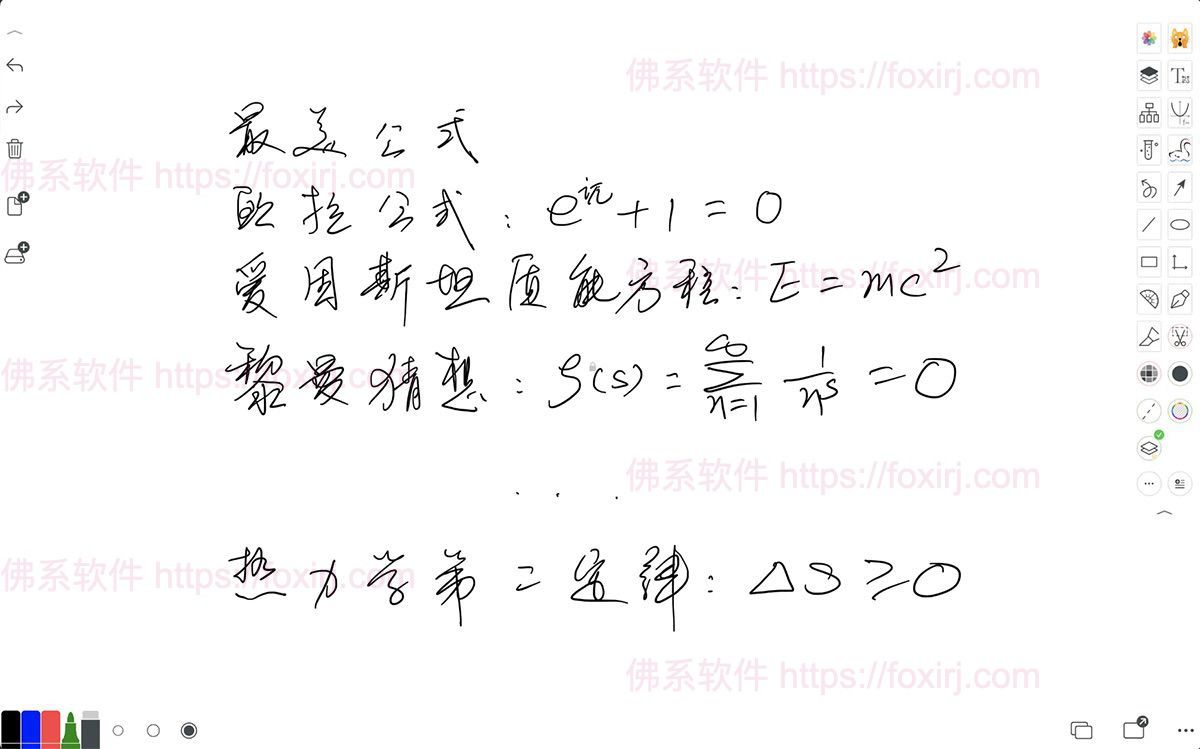 佛系软件 https://foxirj.com
最美公式
佛系软件 https://foxirj.com
欧拉公式：e^{iπ}+1=0
佛系软件 https://foxirj.com
爱因斯坦质能方程：E=mc²
佛系软件 https://foxirj.com
黎曼猜想：ζ(s)=∑_{n=1}^{∞} 1/n^s=0
佛系软件 https://foxirj.com
...
佛系软件 https://foxirj.com
热力学第二定律：ΔS≥0
佛系软件 https://foxirj.com